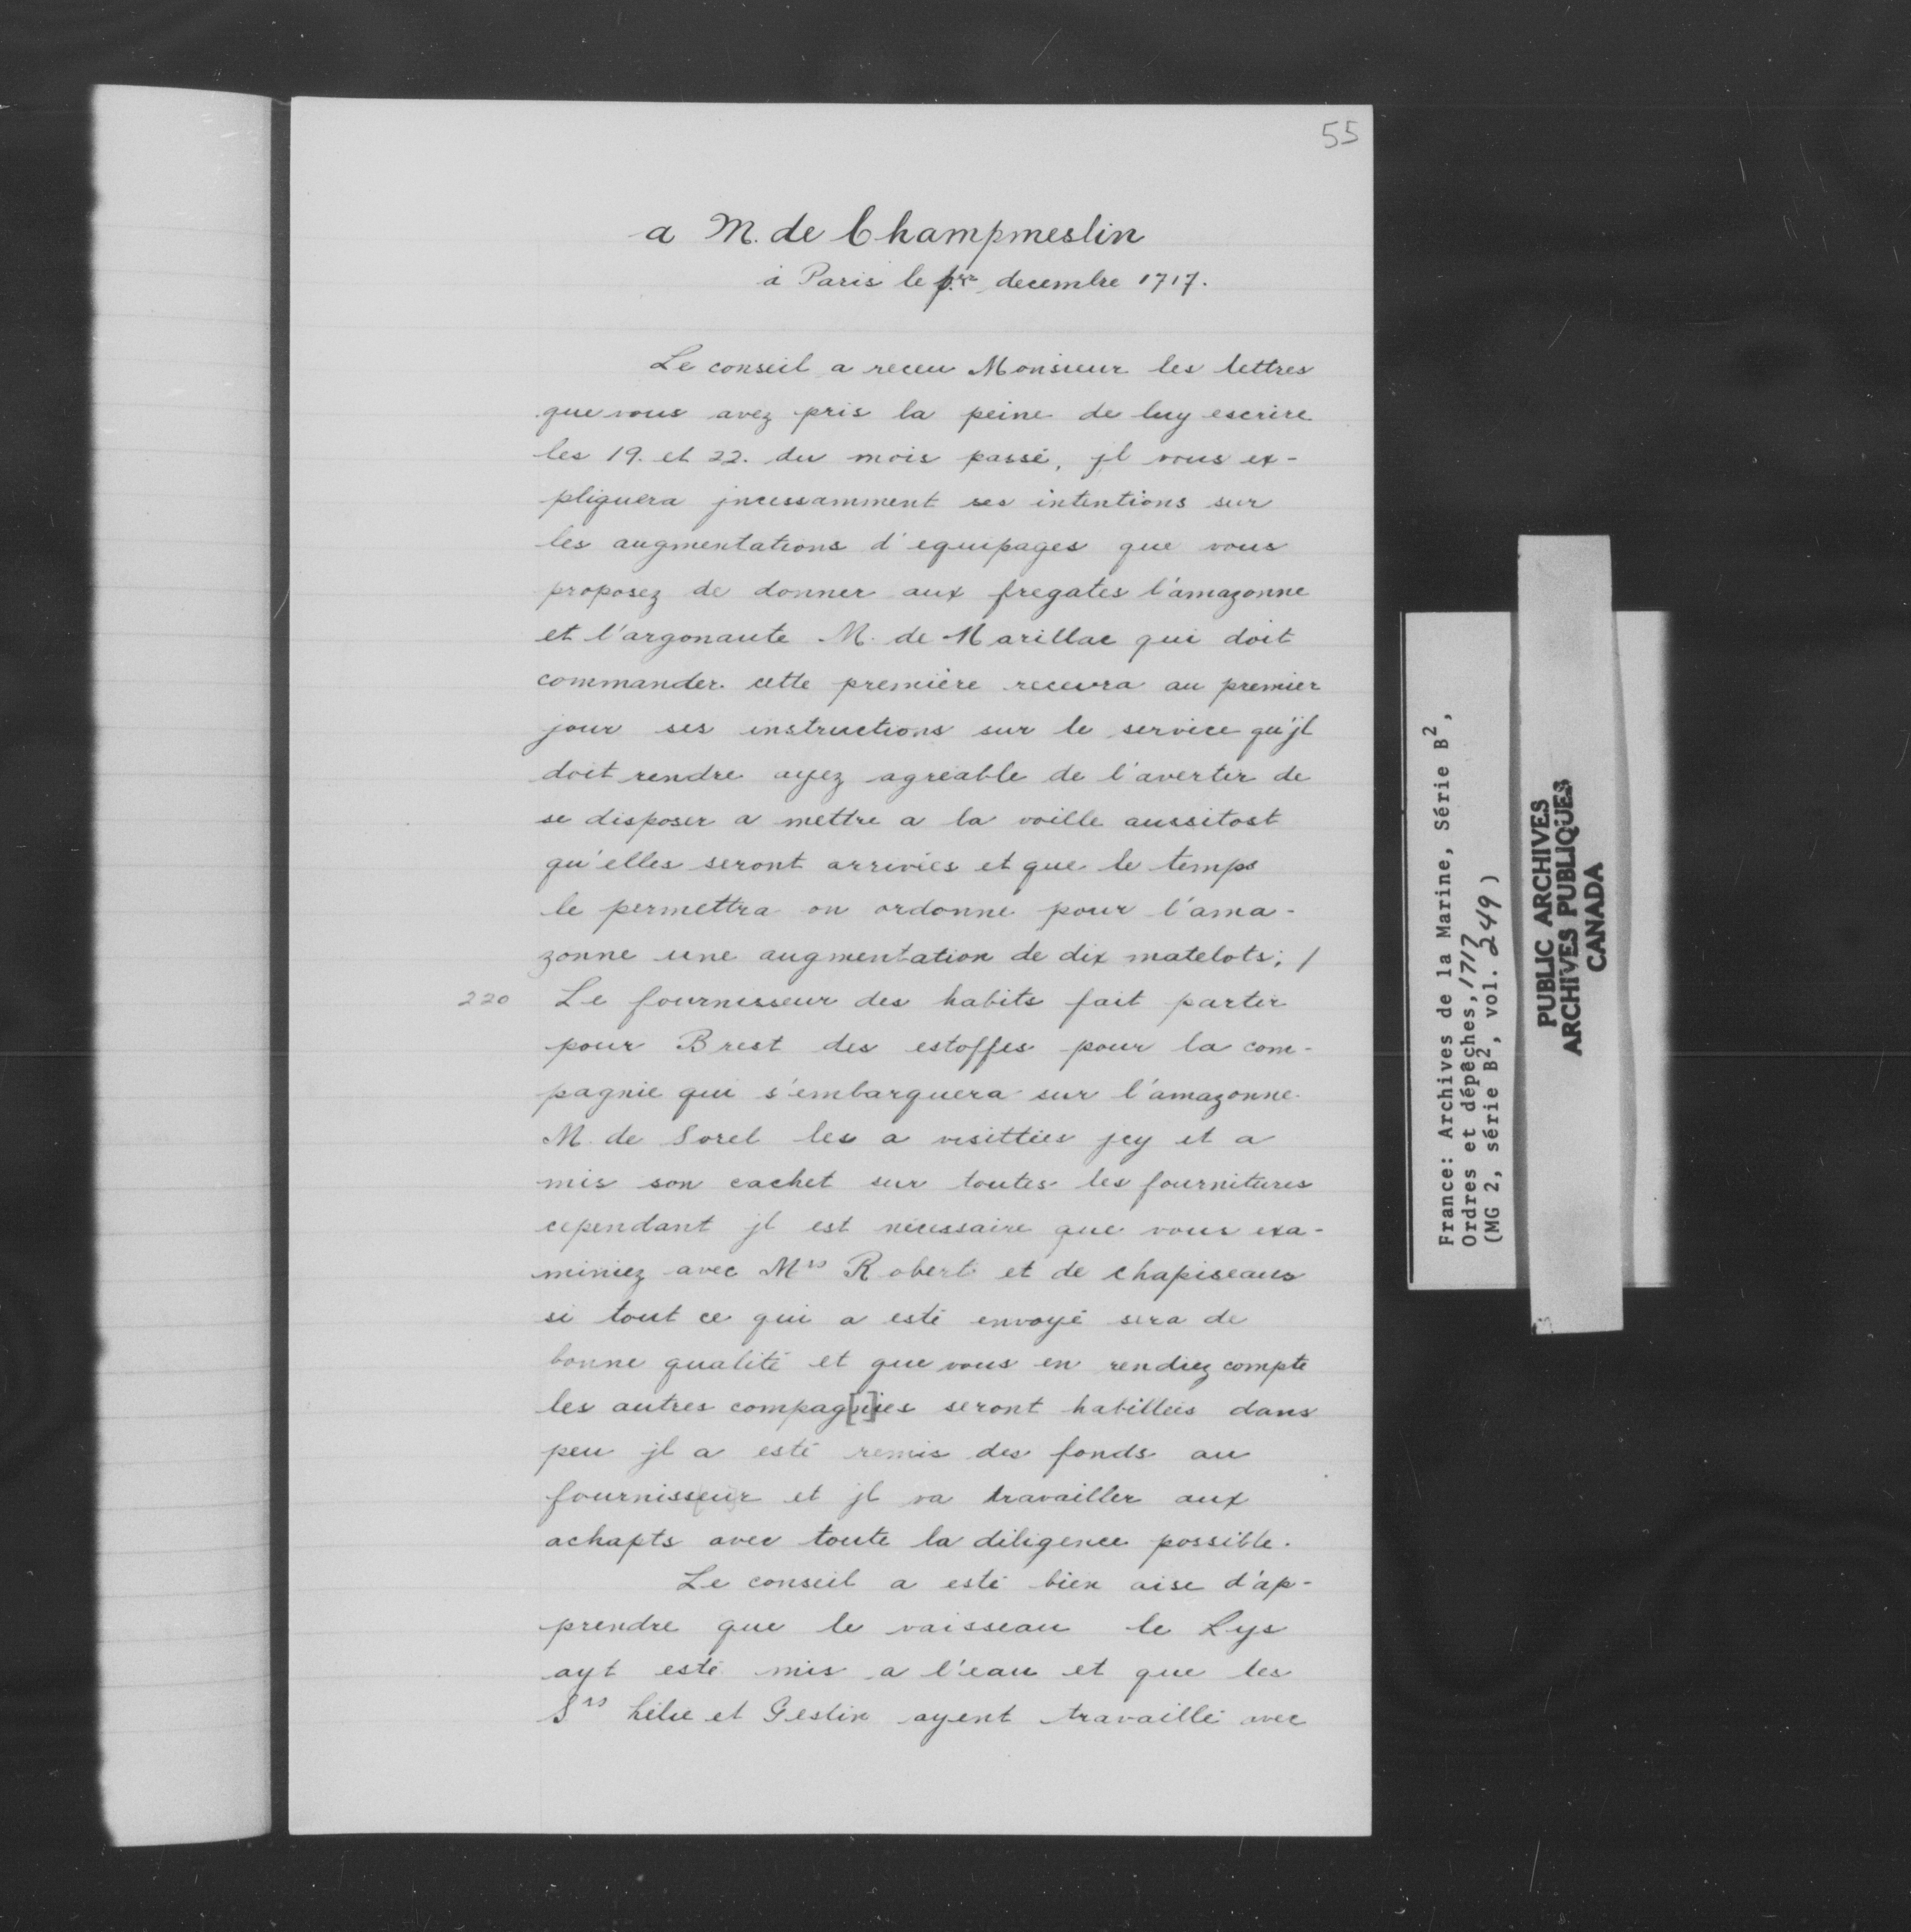 55
a M. de Champmeslin
à Paris le p.er decembre 1717.
Le conseil a receu Monsieur les lettres
que vous avez pris la peine de luy escrire
les 19. et 22. du mois passé, jl vous ex-
pliquera jncessamment ses intentions sur
les augmentations d'equipages que vous
proposez de donner aux fregates l'amazonne
et l'argonaute M. de Marillac qui doit
commander cette premiere recevra au premier
jour ses instructions sur le service qu'jl
doit rendre ayez agreable de l'avertir de
se disposer a mettre a la voille aussitost
qu'elles seront arrivées et que le temps
le permettra on ordonne pour l'ama-
zonne une augmentation de dix matelots; /
220 Le fournisseur des habits fait partir
pour Brest des estoffes pour la com-
pagnie qui s'embarquera sur l'amazonne.
M. de Sorel les a visittées jcy et a
mis son cachet sur toutes les fournitures
cependant jl est nécessaire que vous exa-
miniez avec Mrs Robert et de chapiseaux
si tout ce qui a esté envoyé sera de
bonne qualité et que vous en rendiez compte
les autres compag[n]ies seront habillées dans
peu jl a esté remis des fonds au
fournisseur et jl va travailler aux
achapts avec toute la diligence possible.
Le conseil a esté bien aise d'ap-
prendre que le vaisseau le Lys
ayt esté mis a l'eau et que les
Srs hélie et Geslin ayent travaillé avec
France: Archives de la Marine, Série B2,
Ordres et dépêches, 1717
(MG 2, série B2, vol. 249)
PUBLIC ARCHIVES
ARCHIVES PUBLIQUES
CANADA